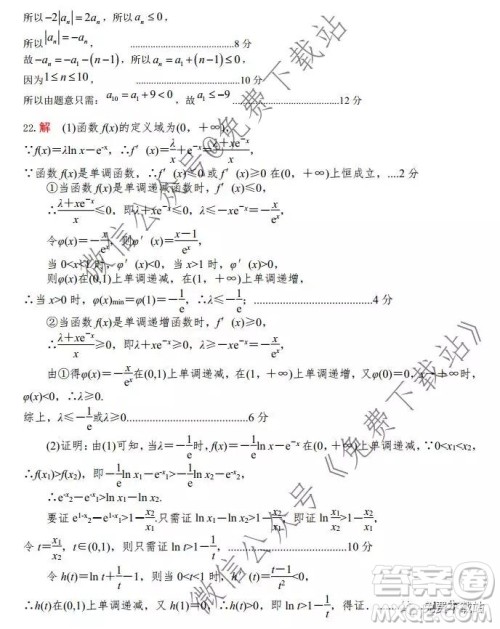 所以-2|aₙ|=2aₙ，所以 aₙ≤0，
所以|aₙ|=-aₙ， ……8分
故-aₙ=-a₁-(n-1)，所以 aₙ=a₁+(n-1)≤0，
因为1≤n≤10， ……10分
所以由题意只需：a₁₀=a₁+9<0，故 a₁≤-9 ……12分
22.解 (1)函数 f(x)的定义域为(0，+∞)，
∵f(x)=λln x-e⁻ˣ，∴f′(x)=λ/x+e⁻ˣ=(λ+xe⁻ˣ)/x，
∵函数 f(x)是单调函数，∴f′(x)≤0 或 f′(x)≥0 在(0，+∞)上恒成立，....2分
①当函数 f(x)是单调递减函数时，f′(x)≤0，
∴(λ+xe⁻ˣ)/x≤0，即λ+xe⁻ˣ≤0，λ≤-xe⁻ˣ=-x/eˣ，
令φ(x)=-x/eˣ，则φ′(x)=(x-1)/eˣ，
当 0<x<1 时，φ′(x)<0，当 x>1 时，φ′(x)>0，
则φ(x)在(0,1)上单调递减，在(1，+∞)上单调递增，
∴当 x>0 时，φ(x)min=φ(1)=-1/e，∴λ≤-1/e；……4分
②当函数 f(x)是单调递增函数时，f′(x)≥0，
∴(λ+xe⁻ˣ)/x≥0，即λ+xe⁻ˣ≥0，λ≥-xe⁻ˣ=-x/eˣ，
由①得φ(x)在(0,1)上单调递减，在(1，+∞)上单调递增，又φ(0)=0，x→+∞时，
φ(x)<0，∴λ≥0.
综上，λ≤-1/e或λ≥0……6分
(2)证明：由(1)可知，当λ=-1/e时，f(x)=-1/e ln x-e⁻ˣ在(0，+∞)上单调递减，∵0<x₁<x₂，
∴f(x₁)>f(x₂)，即-1/e ln x₁-e-x₁>-1/e ln x₂-e-x₂，
∴e-x₁-e-x₂
要证 e1-x₂-e1-x₁>1-x₂/x₁.只需证 ln x₁-ln x₂>1-x₂/x₁，即证 ln x₁/x₂>1-x₂/x₁，
令 t=x₁/x₂，t∈(0,1)，则只需证 ln t>1-1/t，……10分
令 h(t)=ln t+1/t-1，则当 0<t<1 时，h′(t)=(t-1)/t²<0，
∴h(t)在(0,1)上单调递减，又 h(1)=0，∴h(t)>0，即 ln t>1-1/t，得证.
微信公众号@免费下载站
微信公众号《免费下载站》
答案圈